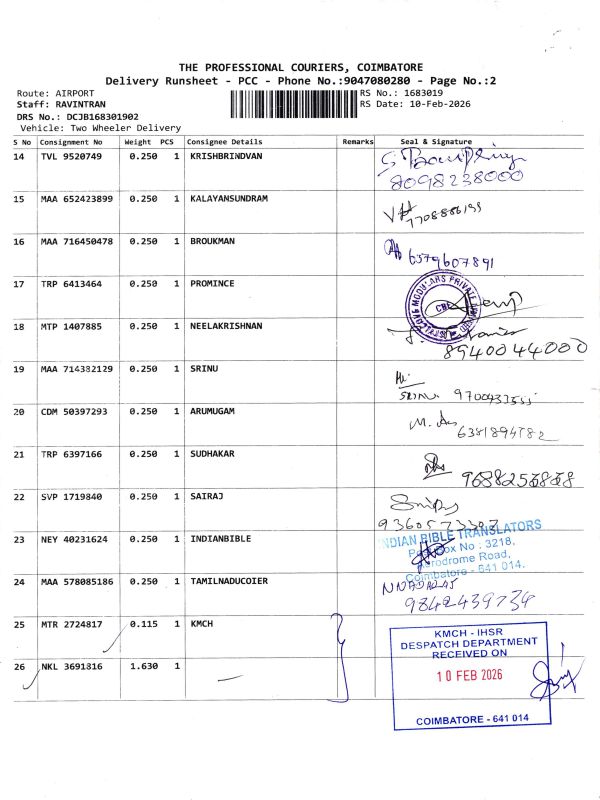 THE PROFESSIONAL COURIERS, COIMBATORE
Delivery Runsheet - PCC - Phone No.:9047080280 - Page No.:2
Route: AIRPORT
Staff: RAVINTRAN
DRS No.: DCJB168301902
Vehicle: Two Wheeler Delivery
RS No.: 1683019
RS Date: 10-Feb-2026
S No Consignment No Weight PCS Consignee Details Remarks Seal & Signature
14 TVL 9520749 0.250 1 KRISHBRINDVAN
8098238000
15 MAA 652423899 0.250 1 KALAYANSUNDRAM
16 MAA 716450478 0.250 1 BROUKMAN
6379607891
17 TRP 6413464 0.250 1 PROMINCE
18 MTP 1407885 0.250 1 NEELAKRISHNAN
8940044000
19 MAA 714382129 0.250 1 SRINU
20 CDM 50397293 0.250 1 ARUMUGAM
21 TRP 6397166 0.250 1 SUDHAKAR
22 SVP 1719840 0.250 1 SAIRAJ
23 NEY 40231624 0.250 1 INDIANBIBLE
INDIAN BIBLE TRANSLATORS
Box No : 3218,
Aerodrome Road,
Coimbatore - 641 014.
24 MAA 578085186 0.250 1 TAMILNADUCOIER
9842439734
25 MTR 2724817 0.115 1 KMCH
26 NKL 3691316 1.630 1
KMCH - IHSR
DESPATCH DEPARTMENT
RECEIVED ON
10 FEB 2026
COIMBATORE - 641 014